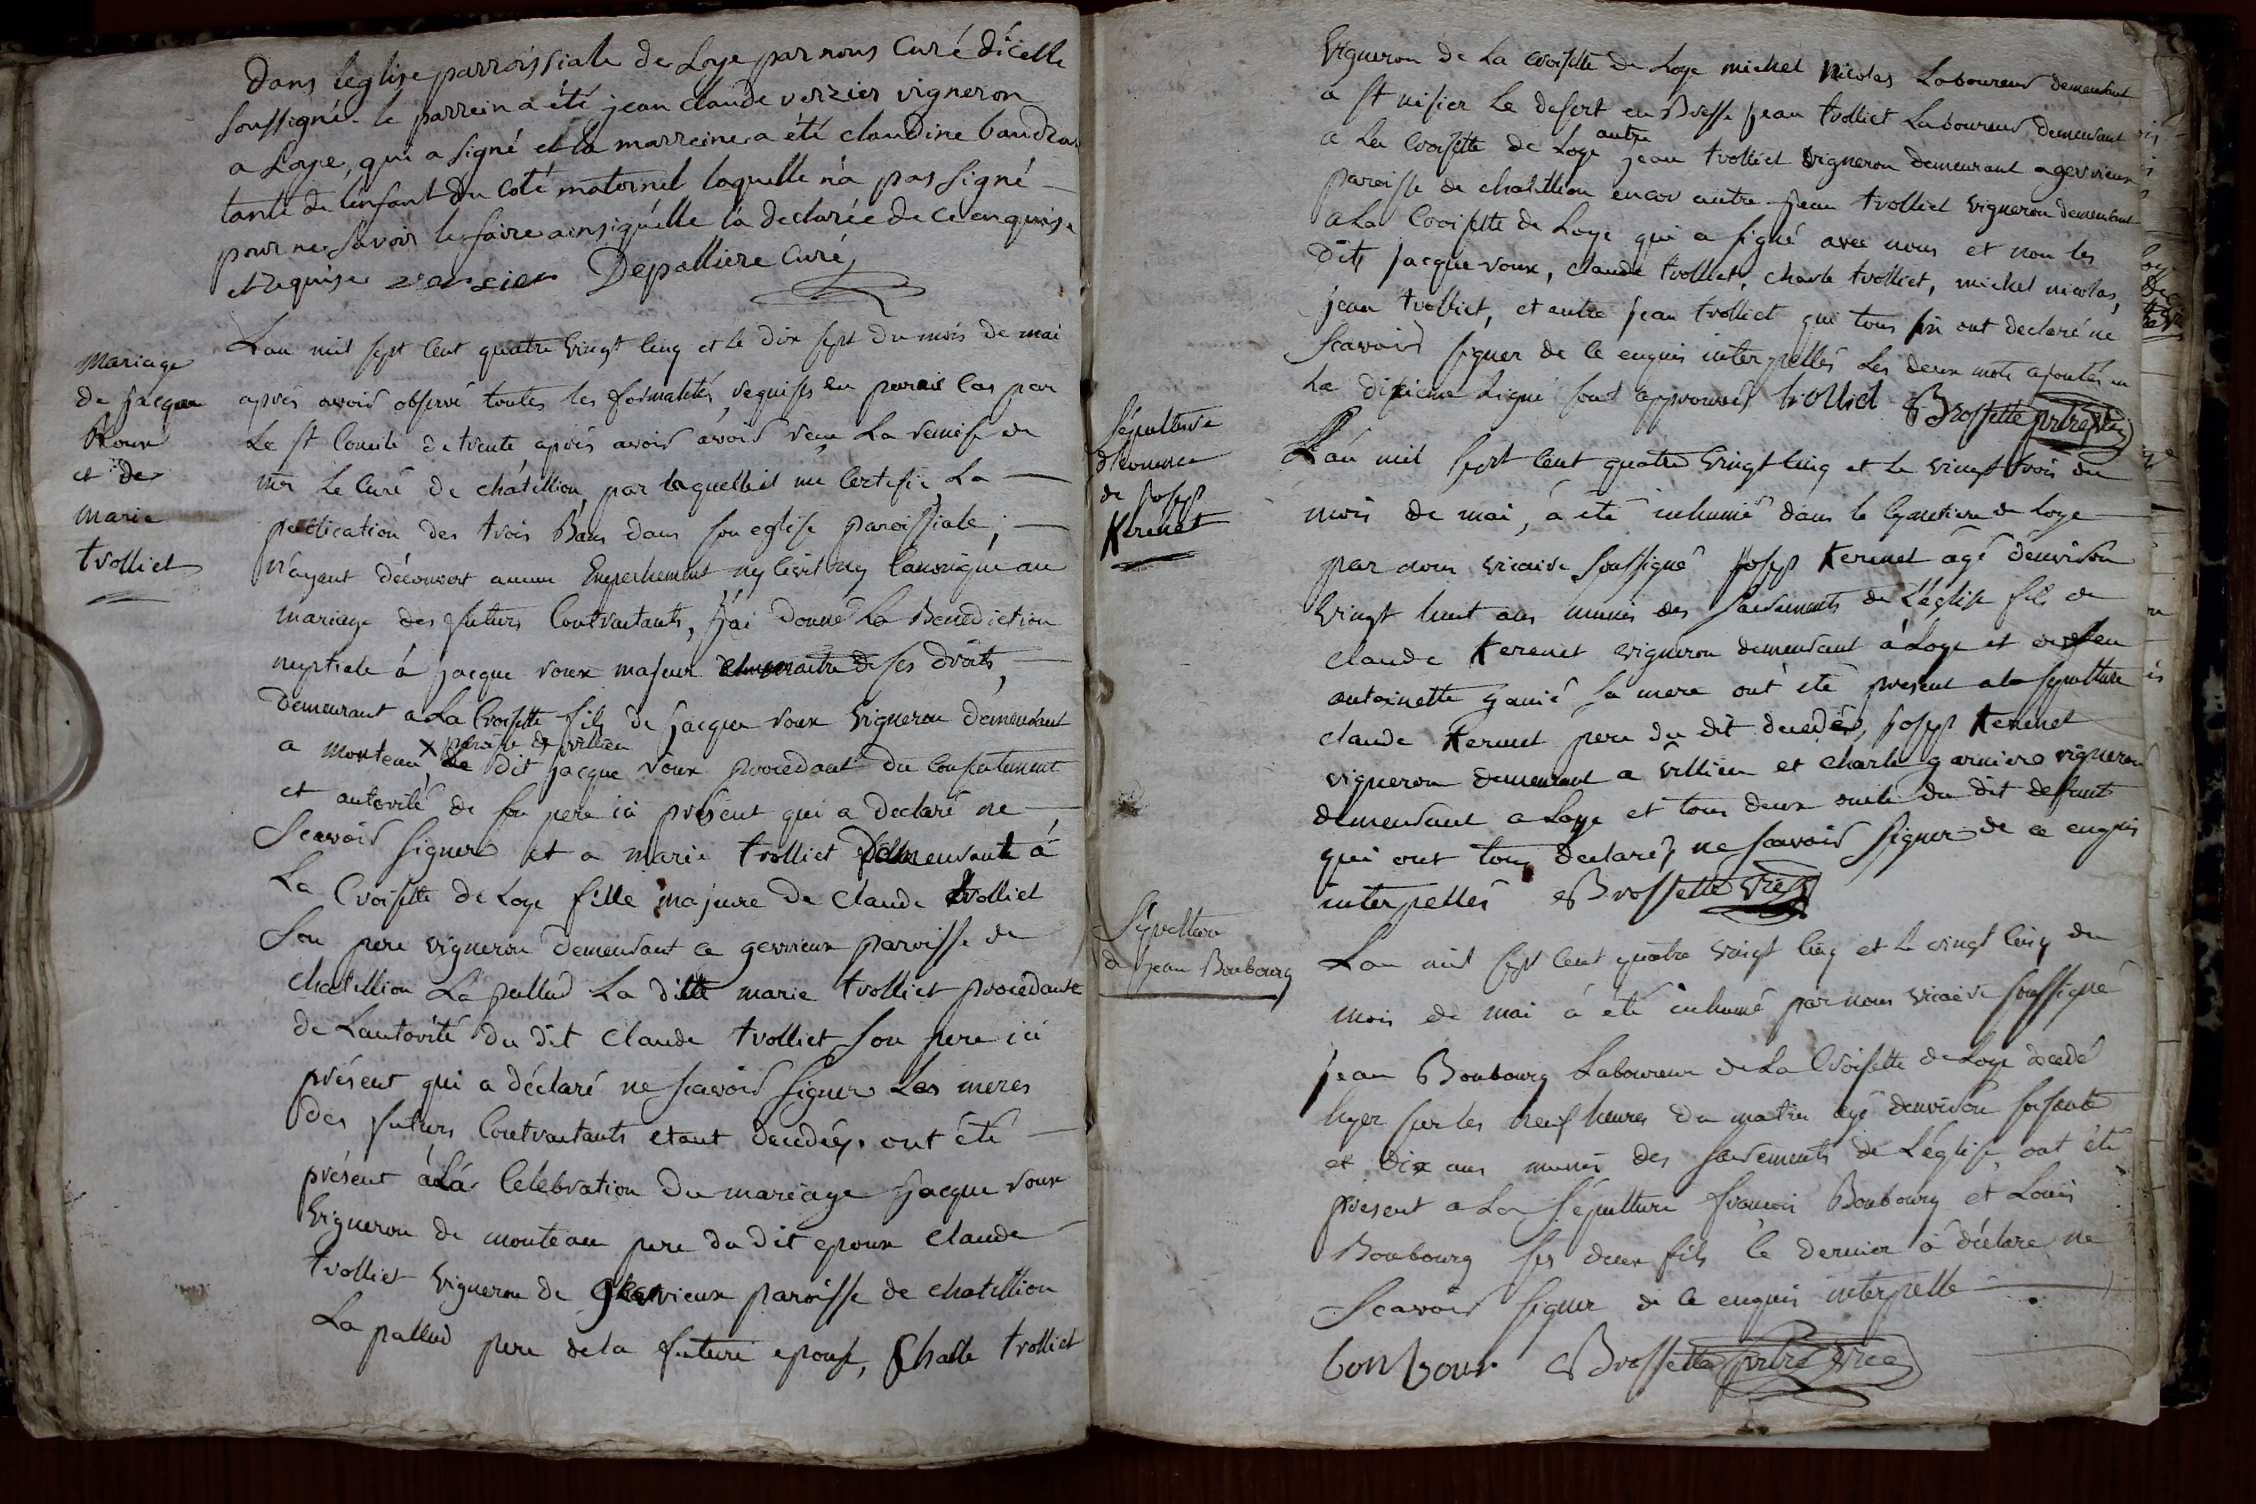 Dans l'eglise parroissiale de Loye par nous Curé d'icelle
soussigné. le parrein a été jean claude verzier vigneron
a Loye, qui a signé et la marreine a été claudine baudran
tante de l'enfant du coté maternel laquelle n'a pas signé
pour ne savoir le faire ainsi qu'elle l'a declarée de ce enquise
et requise verzier Depalliere Curé
Mariage
de jacque
Roux
et de
marie
trolliet
L'an mil sept cent quatre vingt cinq et le dix sept du mois de mai
après avoir observé toutes les formalités requises en pareis cas par
le st Concile de trente, après avoir avoir reçu La remise de
mr Le Curé de châtillion, par laquelle il me Certifie La
publication des trois Bans dans son eglise paroissiale;
n'ayant découvert aucun Empechement ny Civil ny Canonique au
mariage des futurs Contractants, j'ai donné La Benediction
nuptiale à jacque roux majeur et maitre de ses droits,
demeurant a La Croisette fils de jacque roux vigneron demeurant
a monteau X paroisse de villieu
le dit jacque roux procedant du consentement
et autorité de son pere ici présent qui a declaré ne
Scavoir signer et a marie trolliet demeurante à
La Croisette de Loye fille majeure de Claude trolliet
Son pere vigneron demeurant a gevrieux paroisse de
chatillion La pallud La ditte marie trolliet procedante
de Lautorité du dit Claude trolliet son pere ici
présent qui a déclaré ne scavoir signer Les meres
des futurs Contractants etant decedées. ont été
présent à La Celebration du mariage jacque roux
vigneron de monteau pere du dit epoux Claude
trolliet vigneron de gevrieux paroisse de chatillion
La pallud pere de la future epouse, Charle trolliet
vigneron de La croisette de Loye michel Nicolas Laboureur demeurant
a st nisier le desert en Bresse jean trolliet Laboureur demeurant
a La Croisette de Loye autre jean trolliet vigneron demeurant a gevrieux
paroisse de chatillion encor autre jean trolliet vigneron demeurant
a La Croisette de Loye qui a signé avec nous et non les
dits jacque roux, claude trolliet, charle trolliet, michel nicolas,
jean trolliet, et autre jean trolliet qui tous ont declaré ne
Scavoir signer de ce enquis interpellés Les deux mots ajoutés en
La dixieme Ligne sont approuvés trolliet Brossette prtre vic
Sépulture
de josepp
Kerenet
L'an mil sept cent quatre vingt cinq et le vingt trois du
mois de mai, à été inhumé dans le Cymetiere de Loye
par nous vicaire soussigné josepp Kerenet âgé d'environ
vingt huit ans munis des sacrements de L'église fils de
claude Kerenet vigneron demeurant à Loye et de feu
antoinette sa mere ont été présent a la sepulture
claude Kerenet pere du dit decedé, josepp Kerenet
vigneron demeurant a villieu et charle garniere vigneron
demeurant a Loye et tous deux oncle du dit defunt
qui ont tous declaré, ne scavoir signer de ce enquis
interpellés Brossette vic
Sépulture
de jean Bonbourg
L'an mil sept cent quatre vingt cinq et le vingt cinq du
mois de mai à été inhumé par nous vicaire soussigné
jean Bonbourg Laboureur de La Croisette de Loye decedé
hyer sur les neuf heures du matin agé d'environ soisente
et dix ans munis des sacrements de L'église, ont été
présent a La Sépulture francois Bonbourg et Louis
Bonbourg ses deux fils le dernier à déclaré ne
Scavoir signer de ce enquis interpellé
bonbour Brossette prtre vic